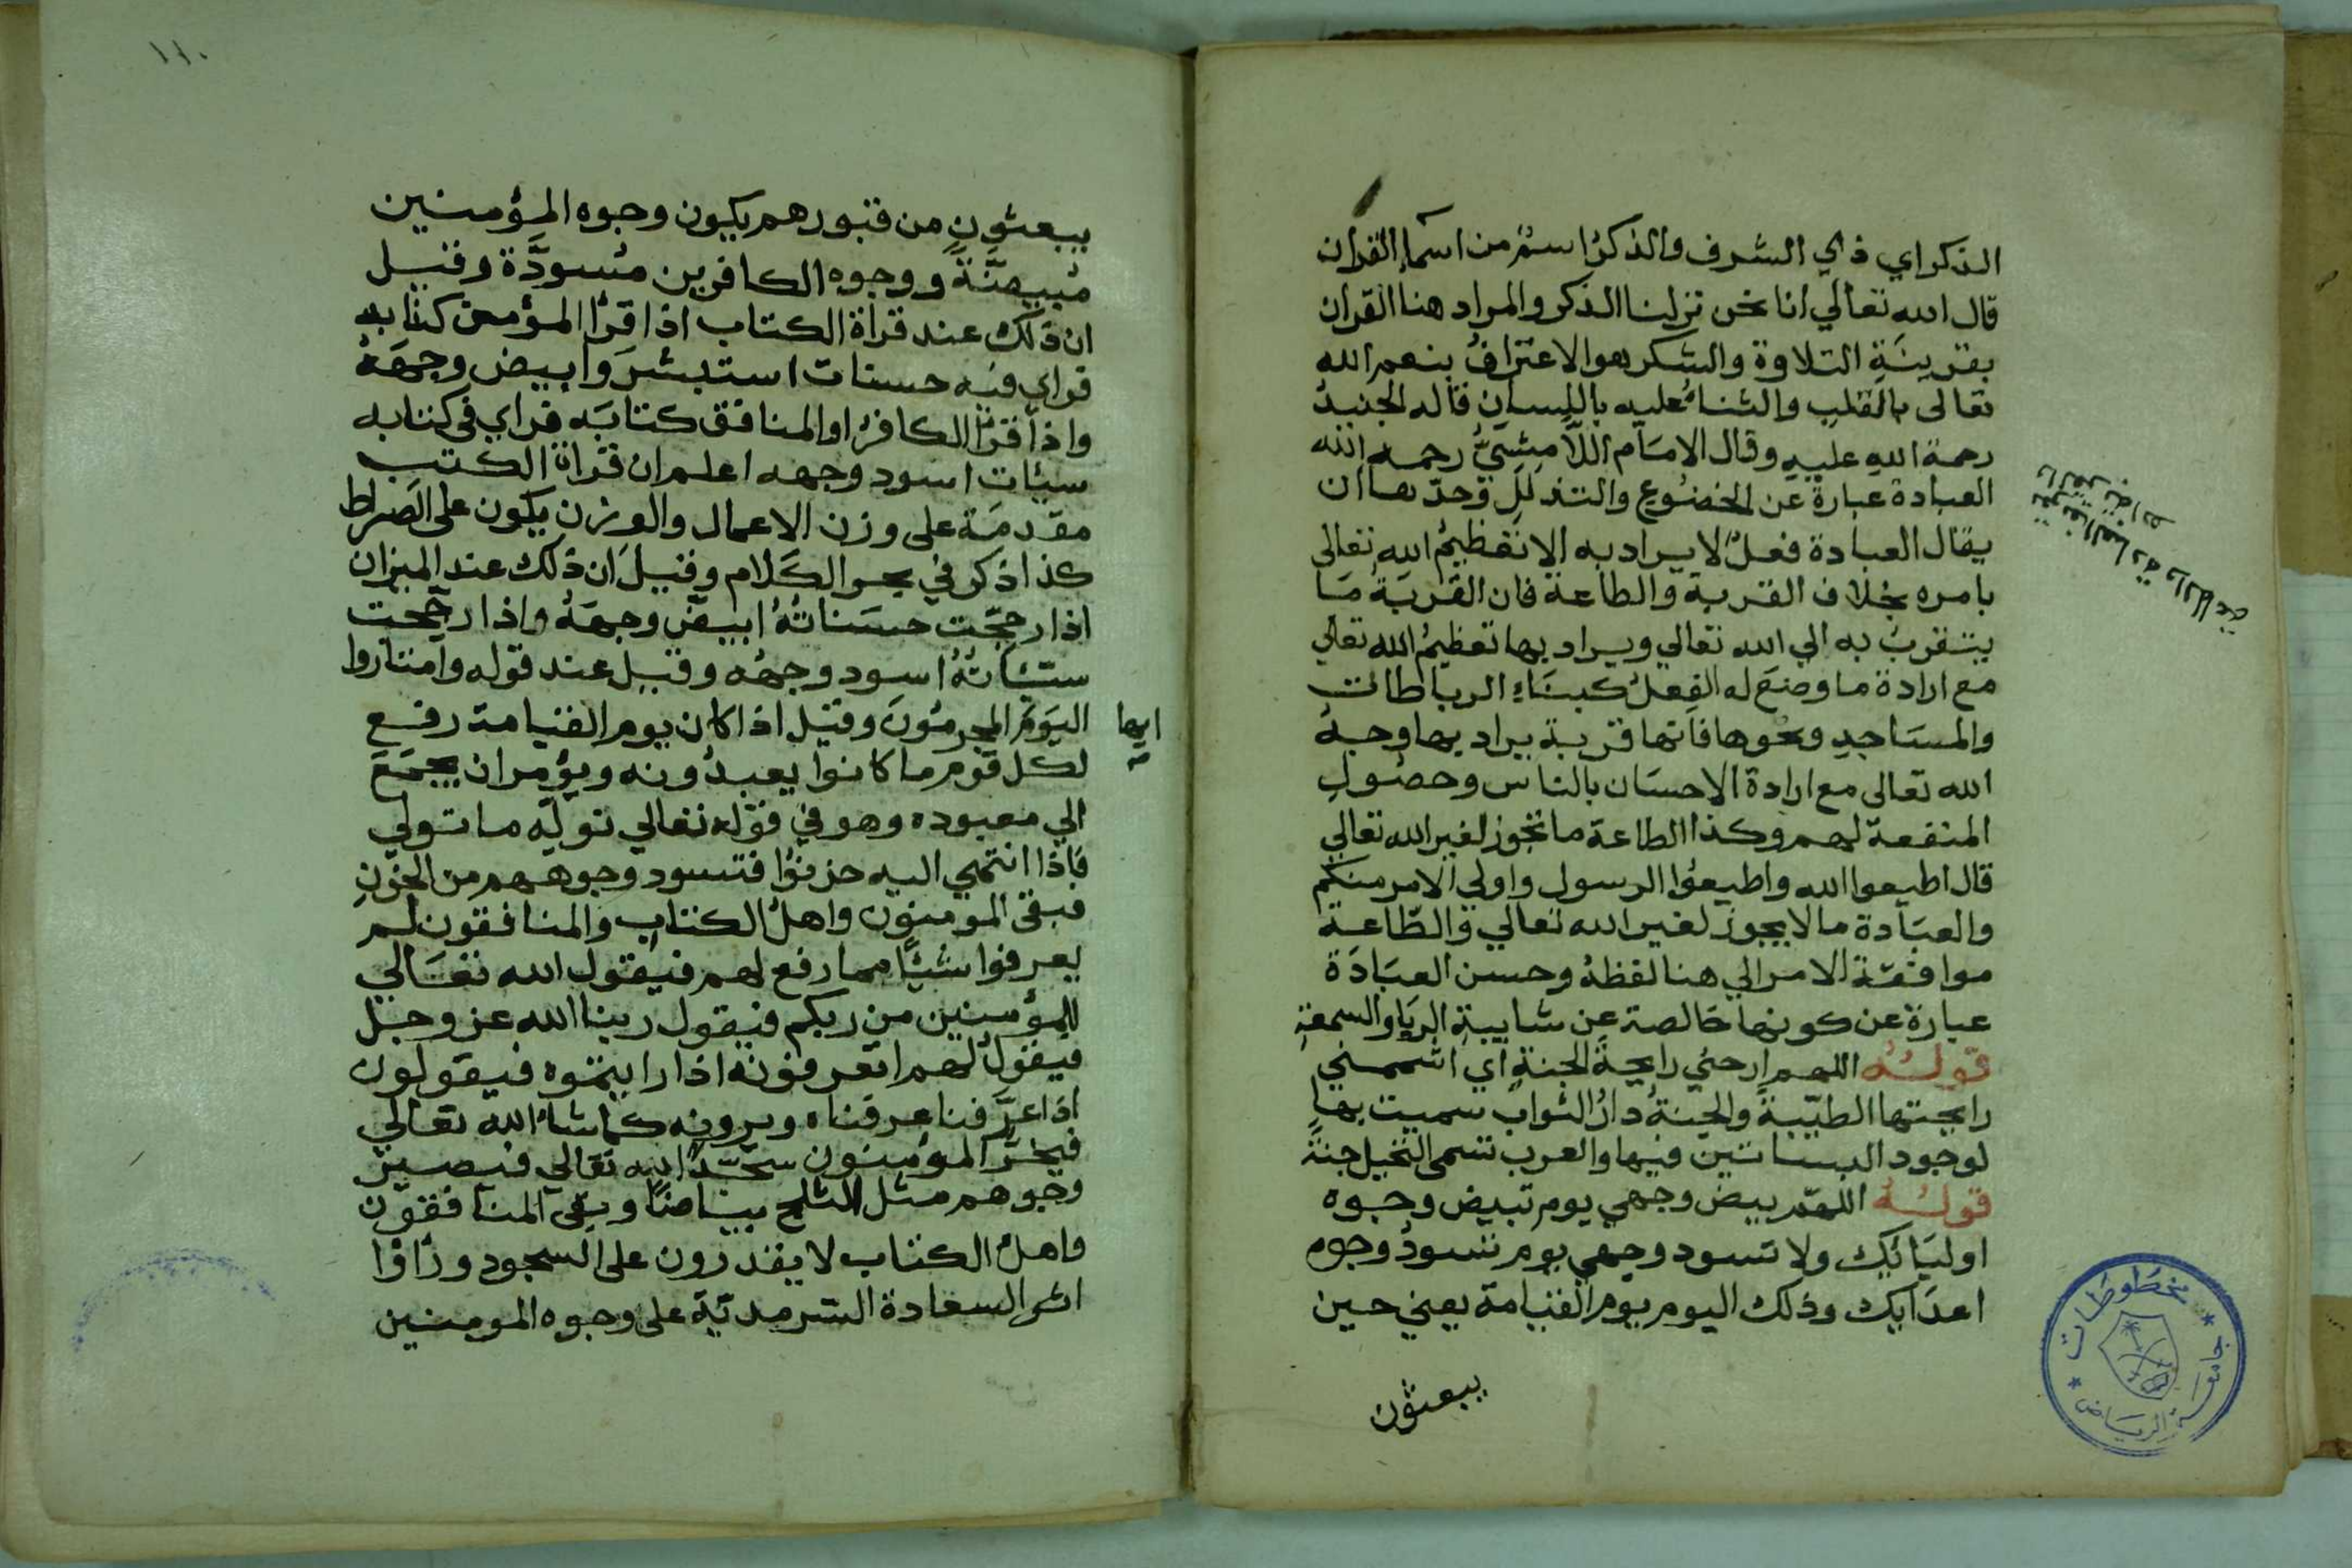 الذكر اي ذي الشرف والذكر اسم من اسماء القران
قال الله تعالي انا نحن نزلنا الذكر والمراد هنا القران
بقرينة التلاوة والشكر هو الاعتراف بنعم الله
تعالى بالقلب والثناء عليه باللسان قاله الجنيد
رحمة الله عليه وقال الامام اللامشي رحمه الله
العبادة عبارة عن الخضوع والتذلل وحدها ان
يقال العبادة فعل لا يراد به الا تعظيم الله تعالى
بامره بخلاف القربة والطاعة فان القربة ما
يتقرب به الي الله تعالي ويراد بها تعظيم الله تعالي
مع ارادة ما وضع له الفعل كبناء الرباطات
والمساجد ونحوها فانها قربة يراد بها وجه
الله تعالى مع ارادة الاحسان بالناس وحصول
المنفعة لهم وكذا الطاعة ما تجوز لغير الله تعالي
قال اطيعوا الله واطيعوا الرسول واولي الامر منكم
والعبادة ما لا يجوز لغير الله تعالي والطاعة
موافقة الامر الي هنا لفظه وحسن العبادة
عبارة عن كونها خالصة عن شايبة الريا والسمعة
قوله اللهم ارحني رايحة الجنة اي اشممني
رايحتها الطيبة والجنة دار الثواب سميت بها
لوجود البساتين فيها والعرب تسمى النخيل جنة
قوله اللهم بيض وجهي يوم تبيض وجوه
اوليائك ولا تسود وجهي يوم تسود وجوه
اعدايك وذلك اليوم يوم القيامة يعني حين
يبعثون
تعريف العبادة والطاعة
والقربة
مخطوطات
جامعة الرياض
١١٠
يبعثون من قبورهم يكون وجوه المؤمنين
مبيضة ووجوه الكافرين مسودة وقيل
ان ذلك عند قراة الكتاب اذا قرأ المؤمن كتابه
فراي فيه حسنات استبشر وابيض وجهه
واذا قرأ الكافر او المنافق كتابه فراي في كتابه
سيئات اسود وجهه اعلم ان قراة الكتب
مقدمة على وزن الاعمال والوزن يكون على الصراط
كذا ذكر في بحر الكلام وقيل ان ذلك عند الميزان
اذا رجحت حسناته ابيض وجهه واذا رجحت
سيئاته اسود وجهه وقيل عند قوله وامتازوا
اليوم المجرمون وقيل اذا كان يوم القيامة رفع
ايها
لكل قوم ما كانوا يعبدونه ويؤمر ان يجمع
الي معبوده وهو في قوله تعالي نوله ما تولي
فاذا انتهي اليه حزنوا فتسود وجوههم من الحزن
فبقى المومنون واهل الكتاب والمنافقون لم
يعرفوا شيئا مما رفع لهم فيقول الله تعالي
للمؤمنين من ربكم فيقول ربنا الله عز وجل
فيقول لهم اتعرفونه اذا رايتموه فيقولون
اذا عرفنا عرفناه ويرونه كما شاء الله تعالي
فيخر المؤمنون سجدا لله تعالي فيصير
وجوههم مثل الثلج بياضا وبقى المنافقون
واهل الكتاب لا يقدرون على السجود وراوا
اثر السعادة السرمدية على وجوه المومنين